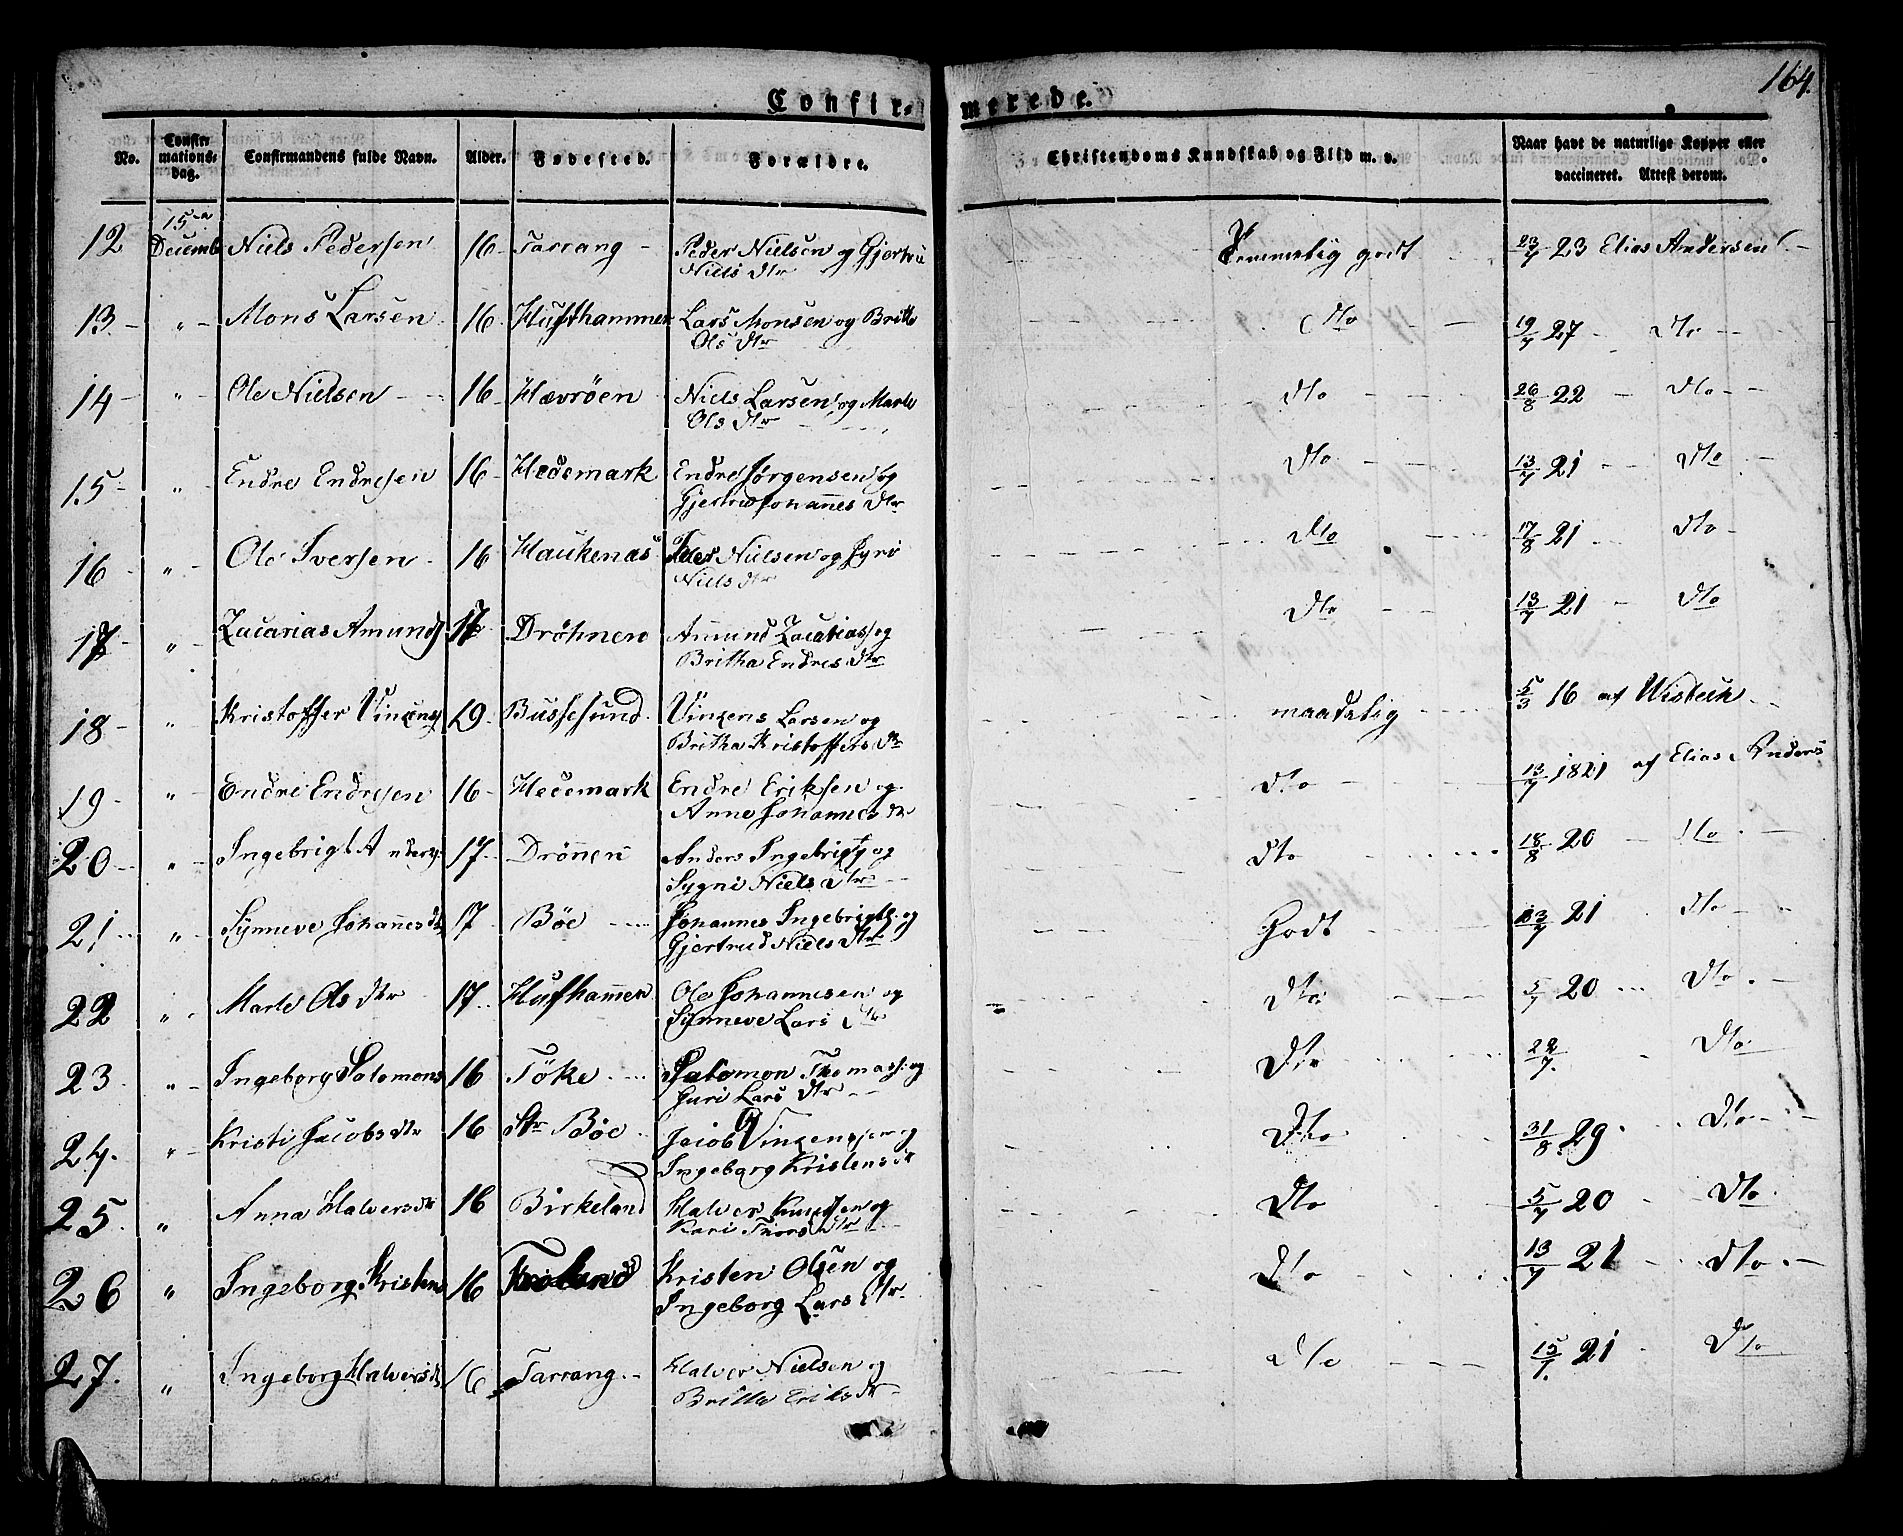 164.
Confirmerede.
No. Confirmationsdag. Confirmandens fulde Navn. Alder. Fødested. Forældre. Christendoms Kundskab og Flid m. v. Naar havt de naturlige Kopper eller vaccineret. Attest derom.
12 15 Decemb Niels Pedersen 16 Tarrang Peder Nielsen og Gjertru Temmelig godt 23/7 23 Elias Andersen
Niels Dtr
13 " Mons Larsen 16 Hufthammer Lars Monsen og Britte Dto 19/7 27 Dto
Ols Dtr
14 " Ole Nielsen 16 Hævröen Niels Larsen og Marte Dto 26/8 22 Dto
Ols Dtr
15 " Endre Endresen 16 Hedemark Endre Jørgensen og Dto 13/7 21 Dto
Gjertrud Johannes Dtr
16 " Ole Iversen 16 Haukenæs Nielsen og Dto 17/8 21 Dto
Niels Dtr
17 " Zacarias Amunds 17 Dröhnen Amund Zacarias og Dto 13/7 21 Dto
Britha Endres Dtr
18 " Kristoffer Vinzens 19 Bussesund Vinzens Larsen og maadelig 5/3 16 af Wisbech
Britha Kristoffers Dtr
19 " Endre Endresen 16 Hedemark Endre Eriksen og Dto 13/7 1821 af Elias Anders
Anne Johannes Dtr
20 " Ingebrigt Anders 17 Drönnen Anders Ingebrigts og Dto 18/8 20 Dto
Sygni Niels Dtr
21 " Synneve Johannes Dt 17 Böe Johannes Ingebrigts og Godt 13/7 21 Dto
Gjertrud Niels Dtr
22 " Marte Ols Dtr 17 Hufhamen Ole Johannesen og Dto 5/7 20 Dto
Synneve Lars Dtr
23 " Ingeborg Salomons 16 Töke Salomon Thomass og Dto 22/7 Dto
Guri Lars Dtr
24. " Kristi Jacobs Dtr 16 Str Böe Jacob Vinzensen og Dto 31/8 29 Dto
Ingeborg Kristens Dt
25. " Anna Halvers Dt 16 Birkeland Halver Knudsen og Dto 5/7 20 Dto
Kari Thors Dtr
26 " Ingeborg Kristens 16 Kristen Olsen og Dto 13/7 21 Dto
Ingeborg Lars Dtr
27. " Ingeborg Halvers D 16 Tarrang Halver Nielsen og Dto 15/7. 21 Dto
Britte Eriks Dtr